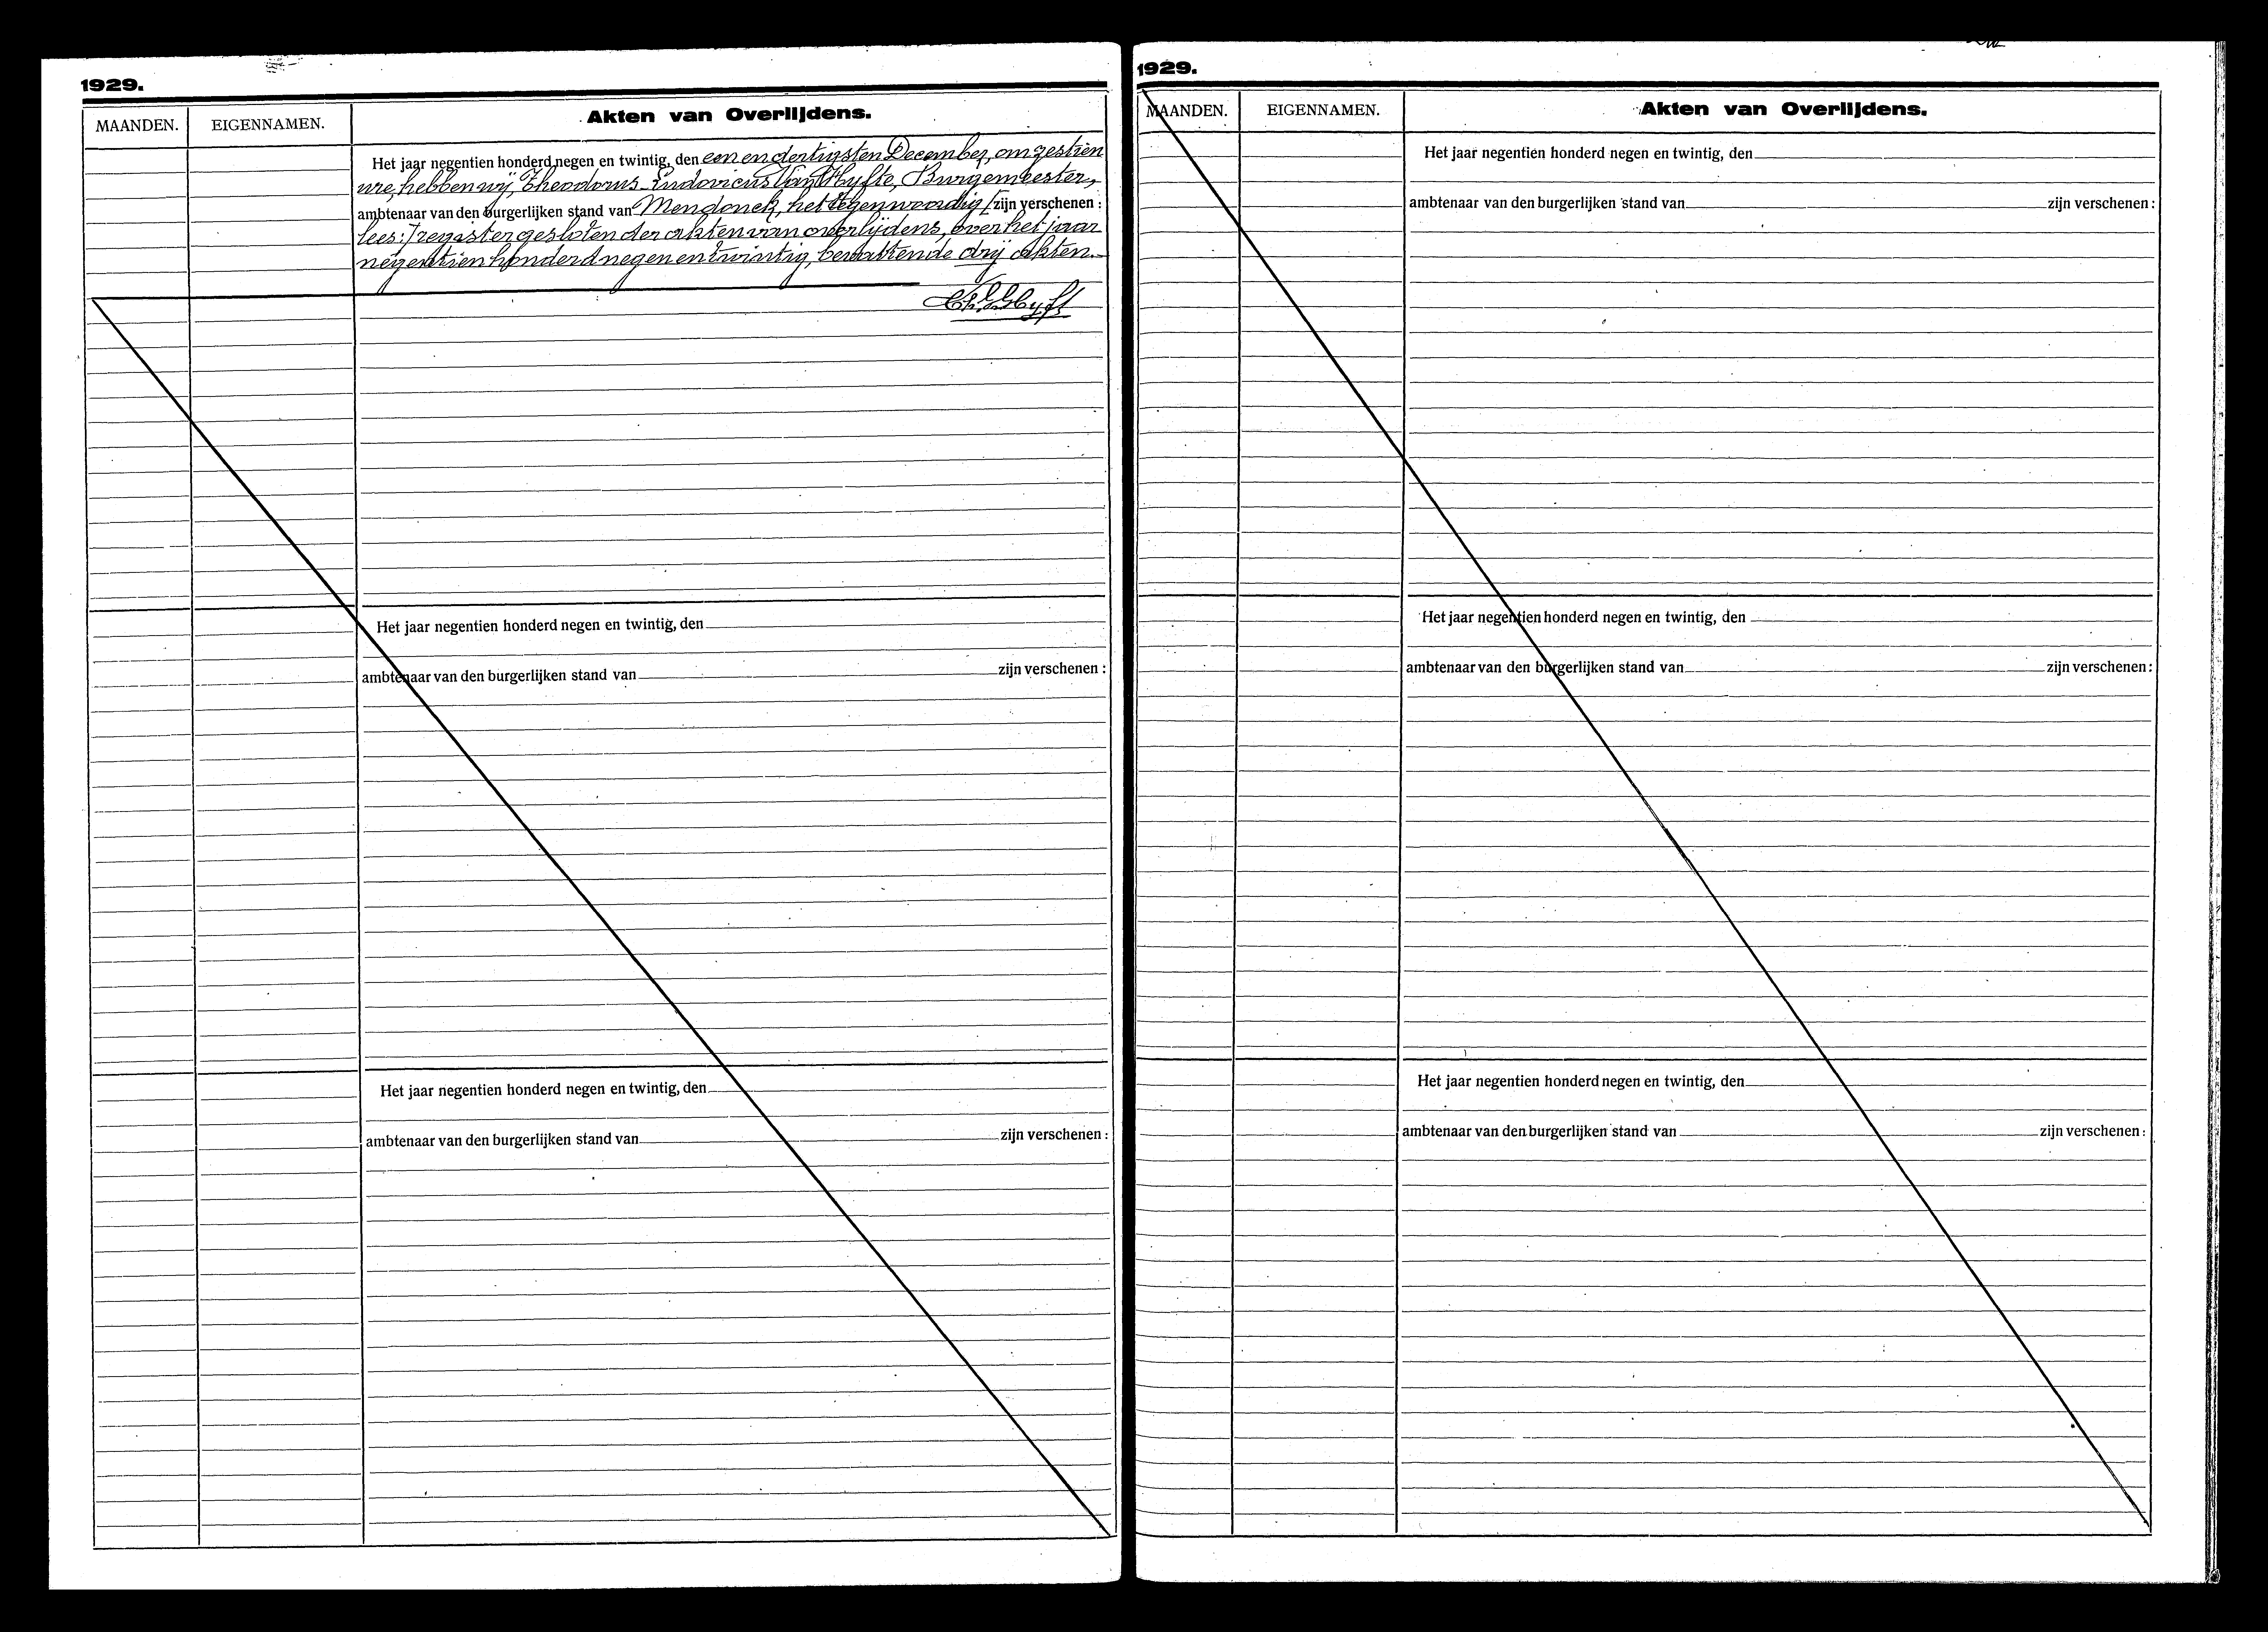 1929.
MAANDEN. EIGENNAMEN. Akten van Overlijdens.
Het jaar negentien honderd negen en twintig, den een en dertigsten December, om zestien
ure, hebben wij, Theodorus Ludovicus Van Hyfte, Burgemeester,
ambtenaar van den burgerlijken stand van Mendonck, het tegenwoordig [zijn verschenen :
lees:] register gesloten der akten van overlijdens, over het jaar
negentien honderd negen en twintig, bevattende drij akten.
Het jaar negentien honderd negen en twintig, den
ambtenaar van den burgerlijken stand van zijn verschenen :
Het jaar negentien honderd negen en twintig, den
ambtenaar van den burgerlijken stand van zijn verschenen :
1929.
MAANDEN. EIGENNAMEN. Akten van Overlijdens.
Het jaar negentien honderd negen en twintig, den
ambtenaar van den burgerlijken stand van zijn verschenen :
Het jaar negentien honderd negen en twintig, den
ambtenaar van den burgerlijken stand van zijn verschenen :
Het jaar negentien honderd negen en twintig, den
ambtenaar van den burgerlijken stand van zijn verschenen :